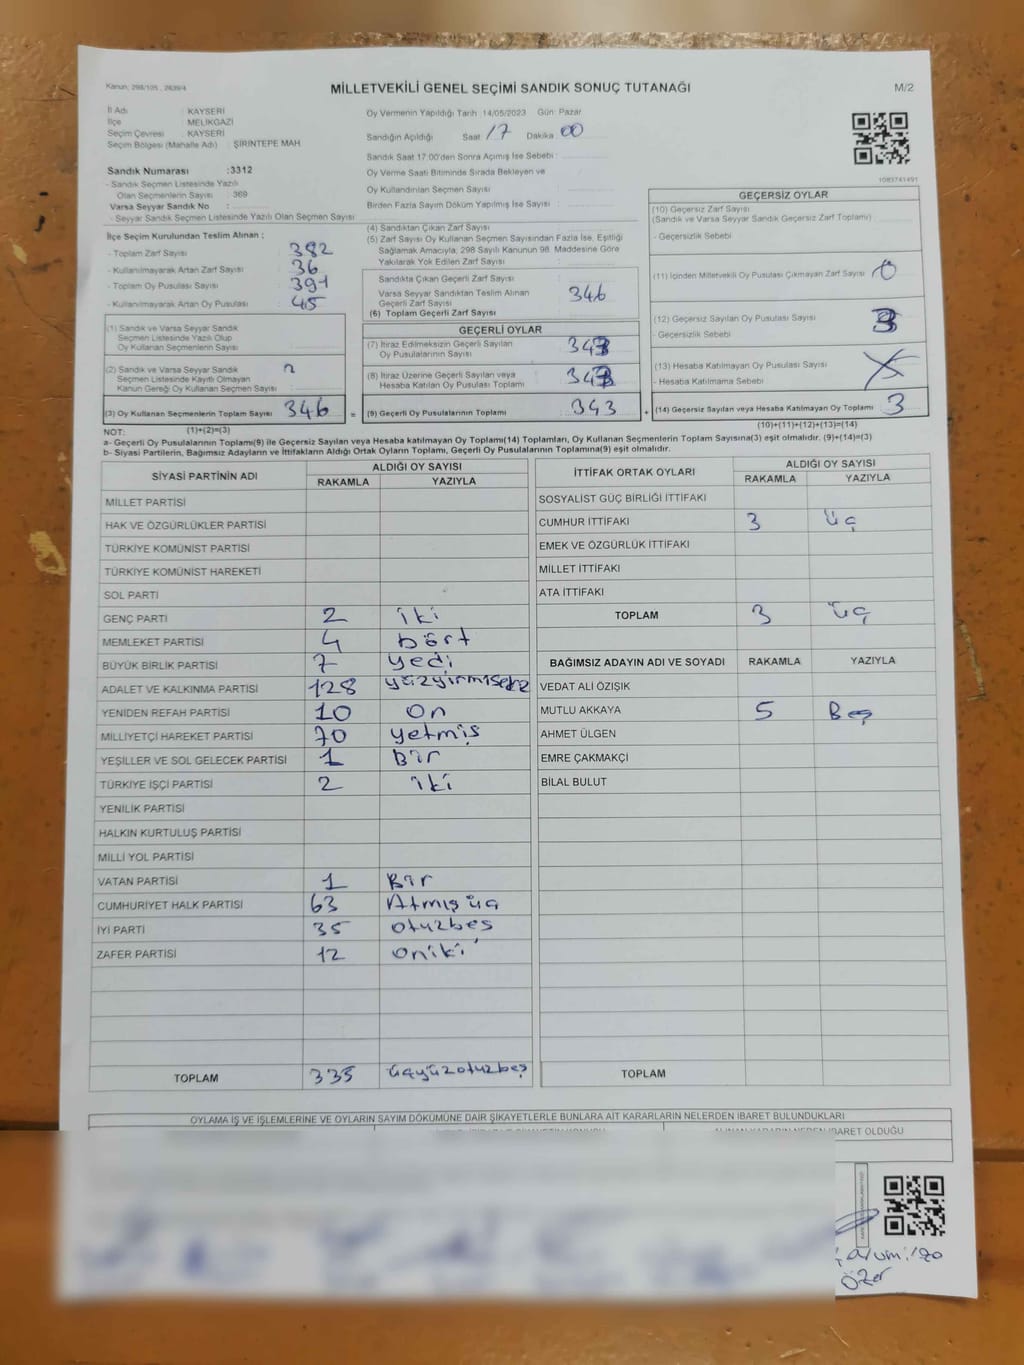 Kanun; 298/105 , 2839/4
MİLLETVEKİLİ GENEL SEÇİMİ SANDIK SONUÇ TUTANAĞI
M/2
İl Adı : KAYSERİ
İlçe : MELİKGAZİ
Seçim Çevresi : KAYSERİ
Seçim Bölgesi (Mahalle Adı) : ŞİRİNTEPE MAH
Oy Vermenin Yapıldığı Tarih :14/05/2023 Gün: Pazar
Sandığın Açıldığı Saat : 17 Dakika : 00
Sandık Saat 17:00'den Sonra Açılmış İse Sebebi :
Oy Verme Saati Bitiminde Sırada Bekleyen ve
Oy Kullandırılan Seçmen Sayısı :
Birden Fazla Sayım Döküm Yapılmış İse Sayısı :
1083741491
Sandık Numarası :3312
- Sandık Seçmen Listesinde Yazılı
Olan Seçmenlerin Sayısı : 369
Varsa Seyyar Sandık No :
- Seyyar Sandık Seçmen Listesinde Yazılı Olan Seçmen Sayısı :
İlçe Seçim Kurulundan Teslim Alınan ;
- Toplam Zarf Sayısı : 382
- Kullanılmayarak Artan Zarf Sayısı : 36
- Toplam Oy Pusulası Sayısı : 391
- Kullanılmayarak Artan Oy Pusulası : 45
(1) Sandık ve Varsa Seyyar Sandık
Seçmen Listesinde Yazılı Olup
Oy Kullanan Seçmenlerin Sayısı :
(2) Sandık ve Varsa Seyyar Sandık
Seçmen Listesinde Kayıtlı Olmayan
Kanun Gereği Oy Kullanan Seçmen Sayısı :
(3) Oy Kullanan Seçmenlerin Toplam Sayısı : 346 =
(1)+(2)=(3)
(4) Sandıktan Çıkan Zarf Sayısı :
(5) Zarf Sayısı Oy Kullanan Seçmen Sayısından Fazla İse, Eşitliği
Sağlamak Amacıyla; 298 Sayılı Kanunun 98. Maddesine Göre
Yakılarak Yok Edilen Zarf Sayısı :
Sandıkta Çıkan Geçerli Zarf Sayısı :
Varsa Seyyar Sandıktan Teslim Alınan
Geçerli Zarf Sayısı
346
(6) Toplam Geçerli Zarf Sayısı :
GEÇERLİ OYLAR
(7) İtiraz Edilmeksizin Geçerli Sayılan
Oy Pusulalarının Sayısı : 343
(8) İtiraz Üzerine Geçerli Sayılan veya
Hesaba Katılan Oy Pusulası Toplamı : 343
(9) Geçerli Oy Pusulalarının Toplamı : 343 +
GEÇERSİZ OYLAR
(10) Geçersiz Zarf Sayısı
(Sandık ve Varsa Seyyar Sandık Geçersiz Zarf Toplamı) :
- Geçersizlik Sebebi :
(11) İçinden Milletvekili Oy Pusulası Çıkmayan Zarf Sayısı : 0
(12) Geçersiz Sayılan Oy Pusulası Sayısı : 3
- Geçersizlik Sebebi :
(13) Hesaba Katılmayan Oy Pusulası Sayısı :
- Hesaba Katılmama Sebebi :
(14) Geçersiz Sayılan veya Hesaba Katılmayan Oy Toplamı : 3
(10)+(11)+(12)+(13)=(14)
NOT:
a- Geçerli Oy Pusulalarının Toplamı(9) ile Geçersiz Sayılan veya Hesaba katılmayan Oy Toplamı(14) Toplamları, Oy Kullanan Seçmenlerin Toplam Sayısına(3) eşit olmalıdır. (9)+(14)=(3)
b- Siyasi Partilerin, Bağımsız Adayların ve İttifakların Aldığı Ortak Oyların Toplamı, Geçerli Oy Pusulalarının Toplamına(9) eşit olmalıdır.
SİYASİ PARTİNİN ADI ALDIĞI OY SAYISI
RAKAMLA YAZIYLA
MİLLET PARTİSİ
HAK VE ÖZGÜRLÜKLER PARTİSİ
TÜRKİYE KOMÜNİST PARTİSİ
TÜRKİYE KOMÜNİST HAREKETİ
SOL PARTİ
GENÇ PARTİ 2 iki
MEMLEKET PARTİSİ 4 Dört
BÜYÜK BİRLİK PARTİSİ 7 yedi
ADALET VE KALKINMA PARTİSİ 128 yüzyirmisekiz
YENİDEN REFAH PARTİSİ 10 On
MİLLİYETÇİ HAREKET PARTİSİ 70 yetmiş
YEŞİLLER VE SOL GELECEK PARTİSİ 1 Bir
TÜRKİYE İŞÇİ PARTİSİ 2 iki
YENİLİK PARTİSİ
HALKIN KURTULUŞ PARTİSİ
MİLLİ YOL PARTİSİ
VATAN PARTİSİ 1 Bir
CUMHURİYET HALK PARTİSİ 63 Atmış üç
İYİ PARTİ 35 otuzbeş
ZAFER PARTİSİ 12 oniki
TOPLAM 335 üçyüzotuzbeş
İTTİFAK ORTAK OYLARI ALDIĞI OY SAYISI
RAKAMLA YAZIYLA
SOSYALİST GÜÇ BİRLİĞİ İTTİFAKI
CUMHUR İTTİFAKI 3 üç
EMEK VE ÖZGÜRLÜK İTTİFAKI
MİLLET İTTİFAKI
ATA İTTİFAKI
TOPLAM 3 üç
BAĞIMSIZ ADAYIN ADI VE SOYADI RAKAMLA YAZIYLA
VEDAT ALİ ÖZIŞIK
MUTLU AKKAYA 5 Beş
AHMET ÜLGEN
EMRE ÇAKMAKÇİ
BİLAL BULUT
TOPLAM
OYLAMA İŞ VE İŞLEMLERİNE VE OYLARIN SAYIM DÖKÜMÜNE DAİR ŞİKAYETLERLE BUNLARA AİT KARARLARIN NELERDEN İBARET BULUNDUKLARI
ALINAN KARARIN NEDEN İBARET OLDUĞU
Özer